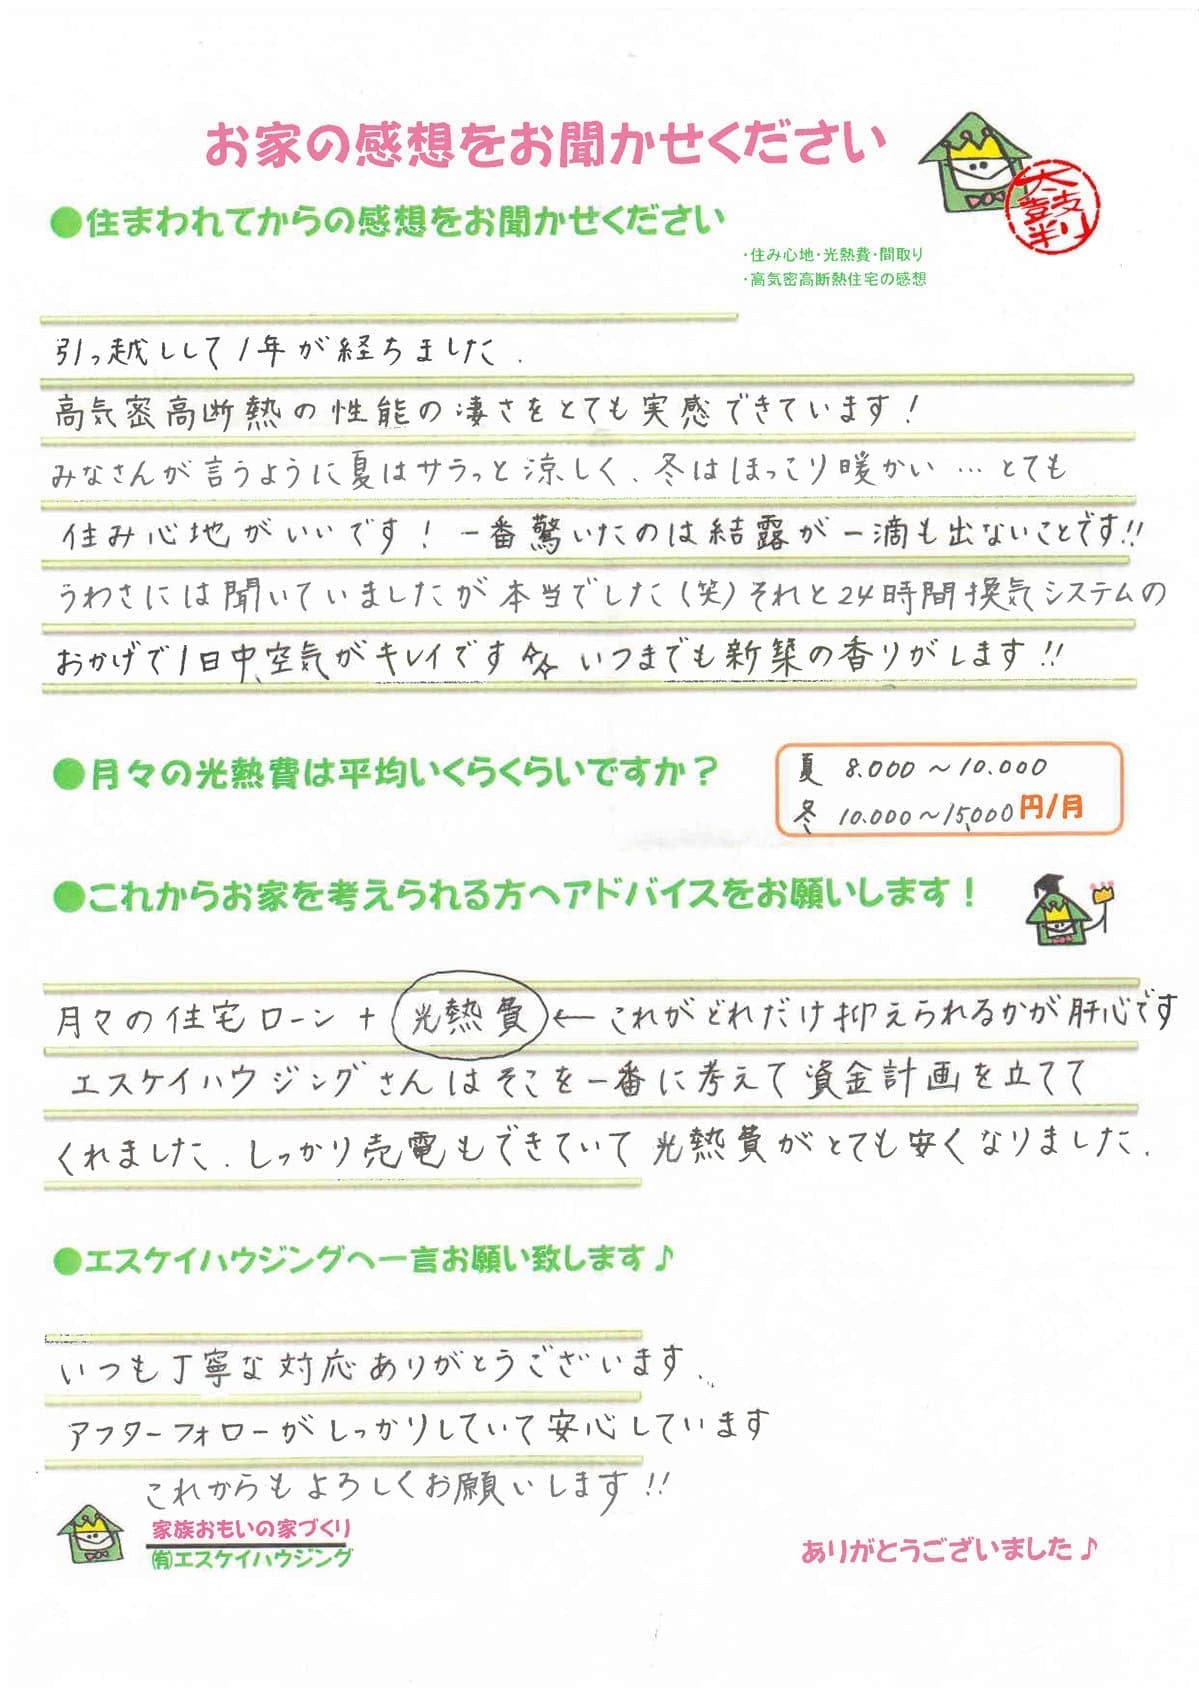 お家の感想をお聞かせください
太鼓判
●住まわれてからの感想をお聞かせください
・住み心地・光熱費・間取り
・高気密高断熱住宅の感想
引っ越しして1年が経ちました.
高気密高断熱の性能の凄さをとても実感できています!
みなさんが言うように夏はサラっと涼しく、冬はほっこり暖かい…とても
住み心地がいいです! 一番驚いたのは結露が一滴も出ないことです!!
うわさには聞いていましたが本当でした(笑)それと24時間換気システムの
おかげで1日中、空気がキレイです いつまでも新築の香りがします!!
●月々の光熱費は平均いくらくらいですか?
夏 8.000~10.000
冬 10.000~15,000円/月
●これからお家を考えられる方へアドバイスをお願いします!
月々の住宅ローン+光熱費←これがどれだけ抑えられるかが肝心です
エスケイハウジングさんはそこを一番に考えて資金計画を立てて
くれました.しっかり売電もできていて光熱費がとても安くなりました.
●エスケイハウジングへ一言お願い致します♪
いつも丁寧な対応ありがとうございます.
アフターフォローがしっかりしていて安心しています
これからもよろしくお願いします!!
家族おもいの家づくり
㈲エスケイハウジング
ありがとうございました♪